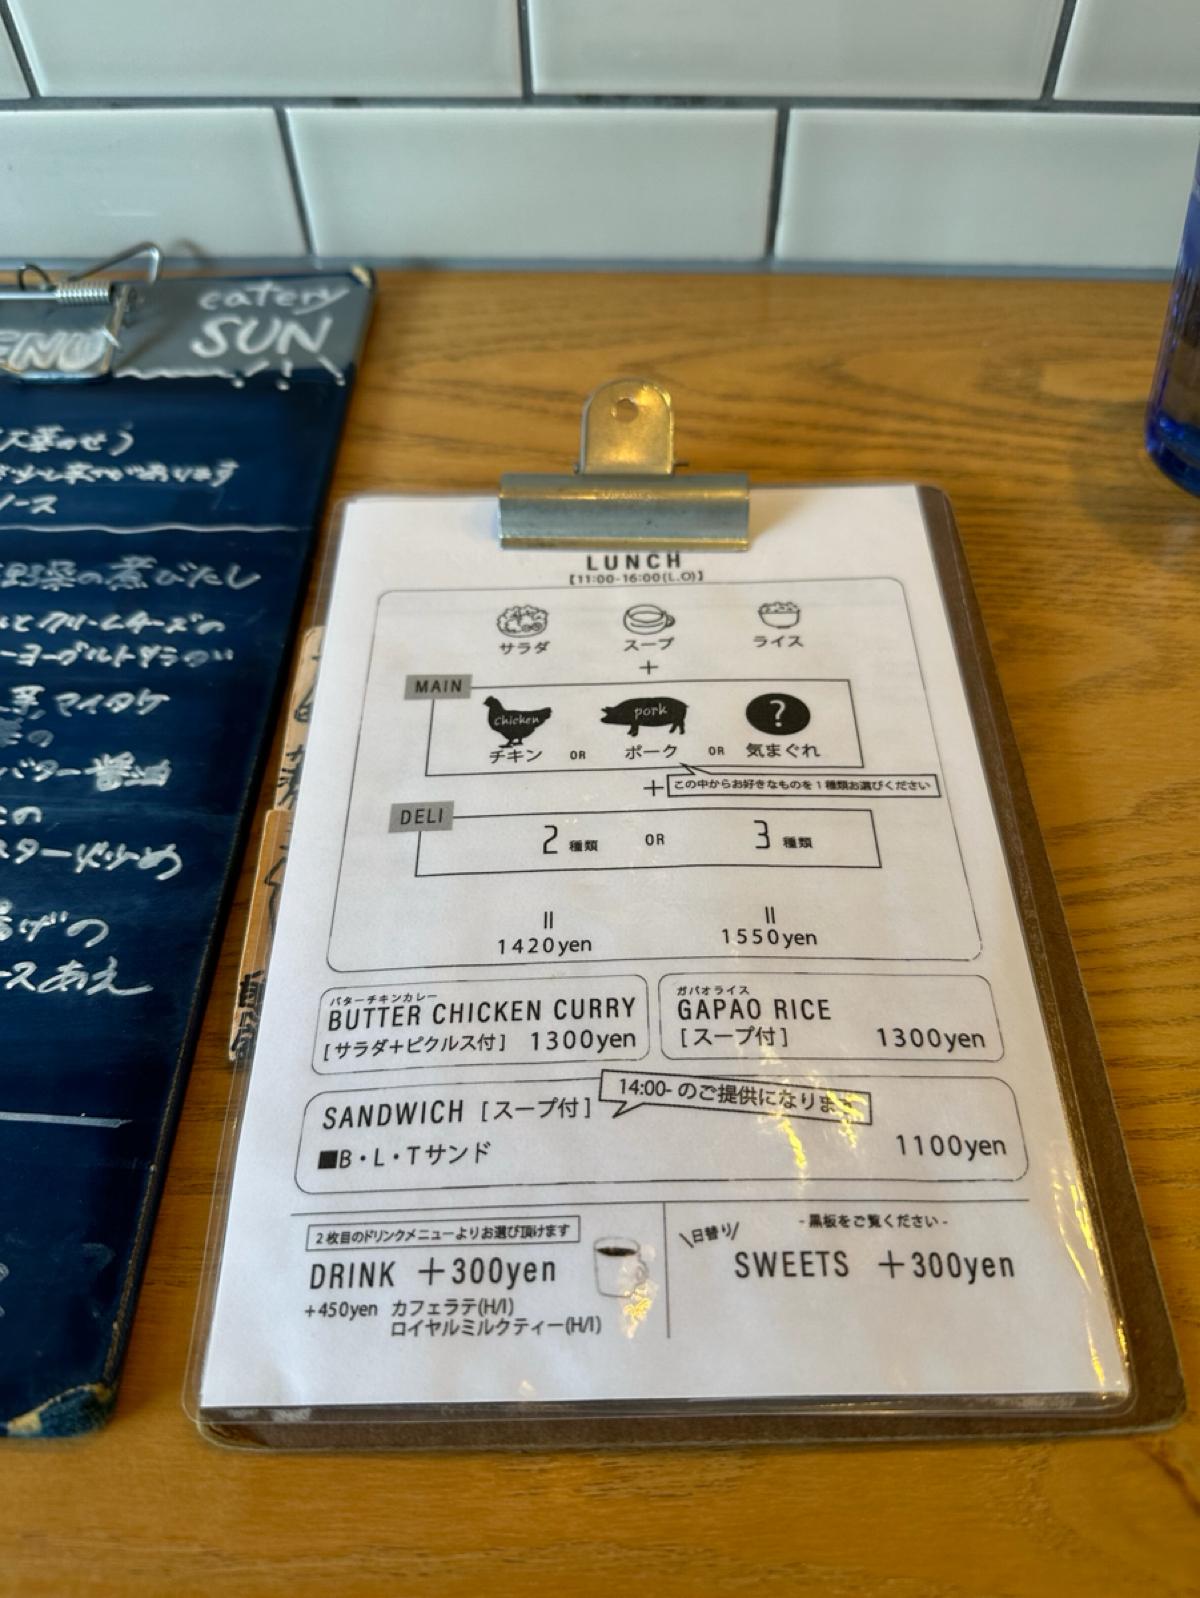 eatery
SUN
ソース
野菜の煮びたし
クリームチーズの
マイタケ
バター醤油
LUNCH
【11:00-16:00(L.O)】
サラダ スープ ライス
+
MAIN
Chicken pork ?
チキン OR ポーク OR 気まぐれ
+ この中からお好きなものを1種類お選びください
DELI
2種類 OR 3種類
= =
1420yen 1550yen
バターチキンカレー
BUTTER CHICKEN CURRY
[サラダ+ピクルス付] 1300yen
ガパオライス
GAPAO RICE
[スープ付] 1300yen
14:00- のご提供になります
SANDWICH [スープ付]
■B・L・Tサンド 1100yen
2枚目のドリンクメニューよりお選び頂けます
DRINK +300yen
+450yen カフェラテ(H/I)
ロイヤルミルクティー(H/I)
\日替り/ -黒板をご覧ください-
SWEETS +300yen